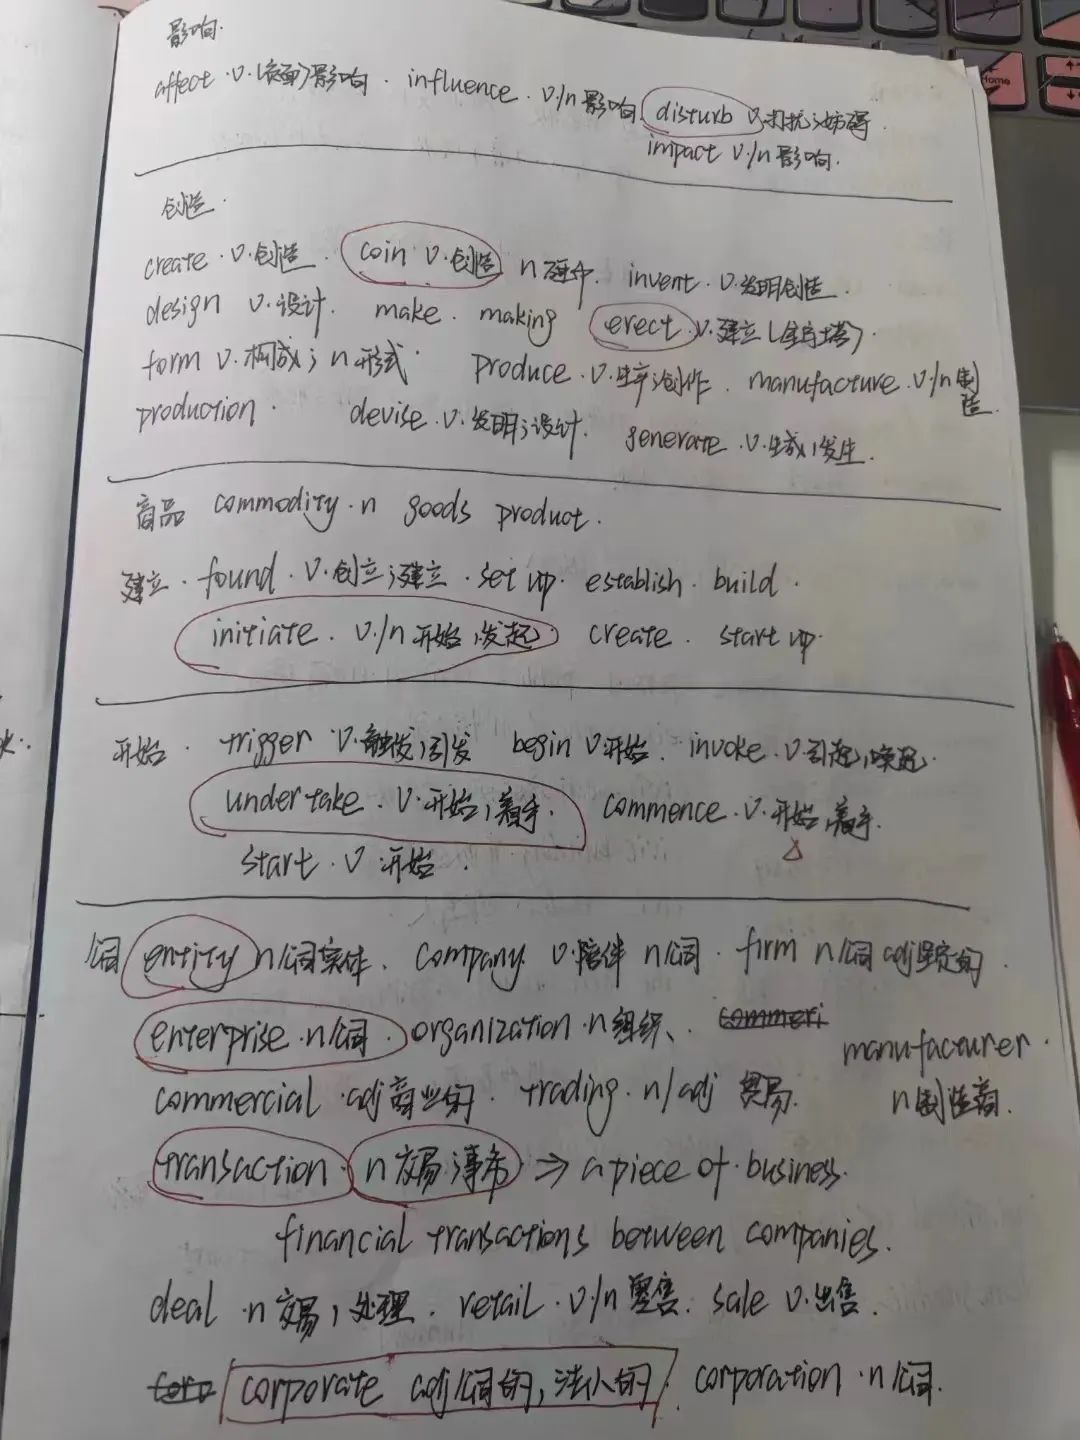 影响.
affect .v.(负面)影响 . influence . v./n 影响 disturb v.打扰;妨碍.
impact v./n 影响.
创造.
create .v.创造 . coin v.创造 n 硬币. invent .v.发明创造.
design v.设计. make. making erect.v.建立(金字塔).
form v.构成; n 形式. produce.v.生产;创作. manufacture.v./n制造.
production. devise.v.发明;设计. generate.v.生成,发生.
商品 commodity.n goods product.
建立. found .v.创立;建立 .set up. establish. build.
initiate. v./n 开始,发起 create. start up.
开始. trigger v.触发,引发 begin v.开始. invoke.v.引起,唤起.
undertake.v.开始,着手. commence.v.开始,着手.
start.v.开始.
公司 entity n公司实体. company. v.陪伴 n公司. firm n公司 adj坚定的.
enterprise.n公司. organization.n组织、 commeri
manufacturer.
commercial .adj商业的. trading.n/adj 贸易. n制造商.
transaction. n 交易;事务 ⇒ a piece of business.
financial transactions between companies.
deal .n 交易,处理. retail.v./n 零售. sale v.出售.
corporate adj公司的,法人的. corporation.n公司.
Home